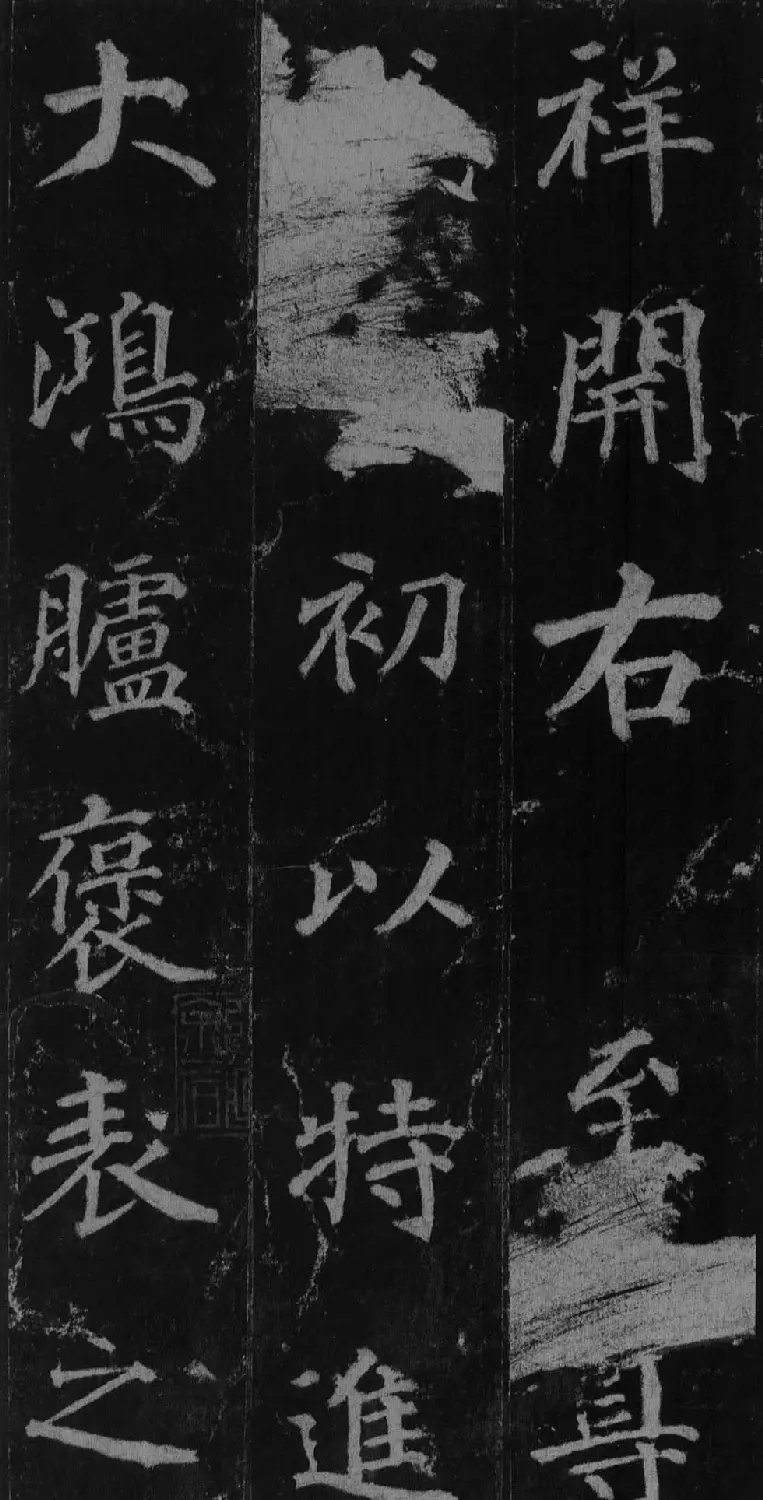 祥開右至尋
初以特進
大鴻臚褒表之